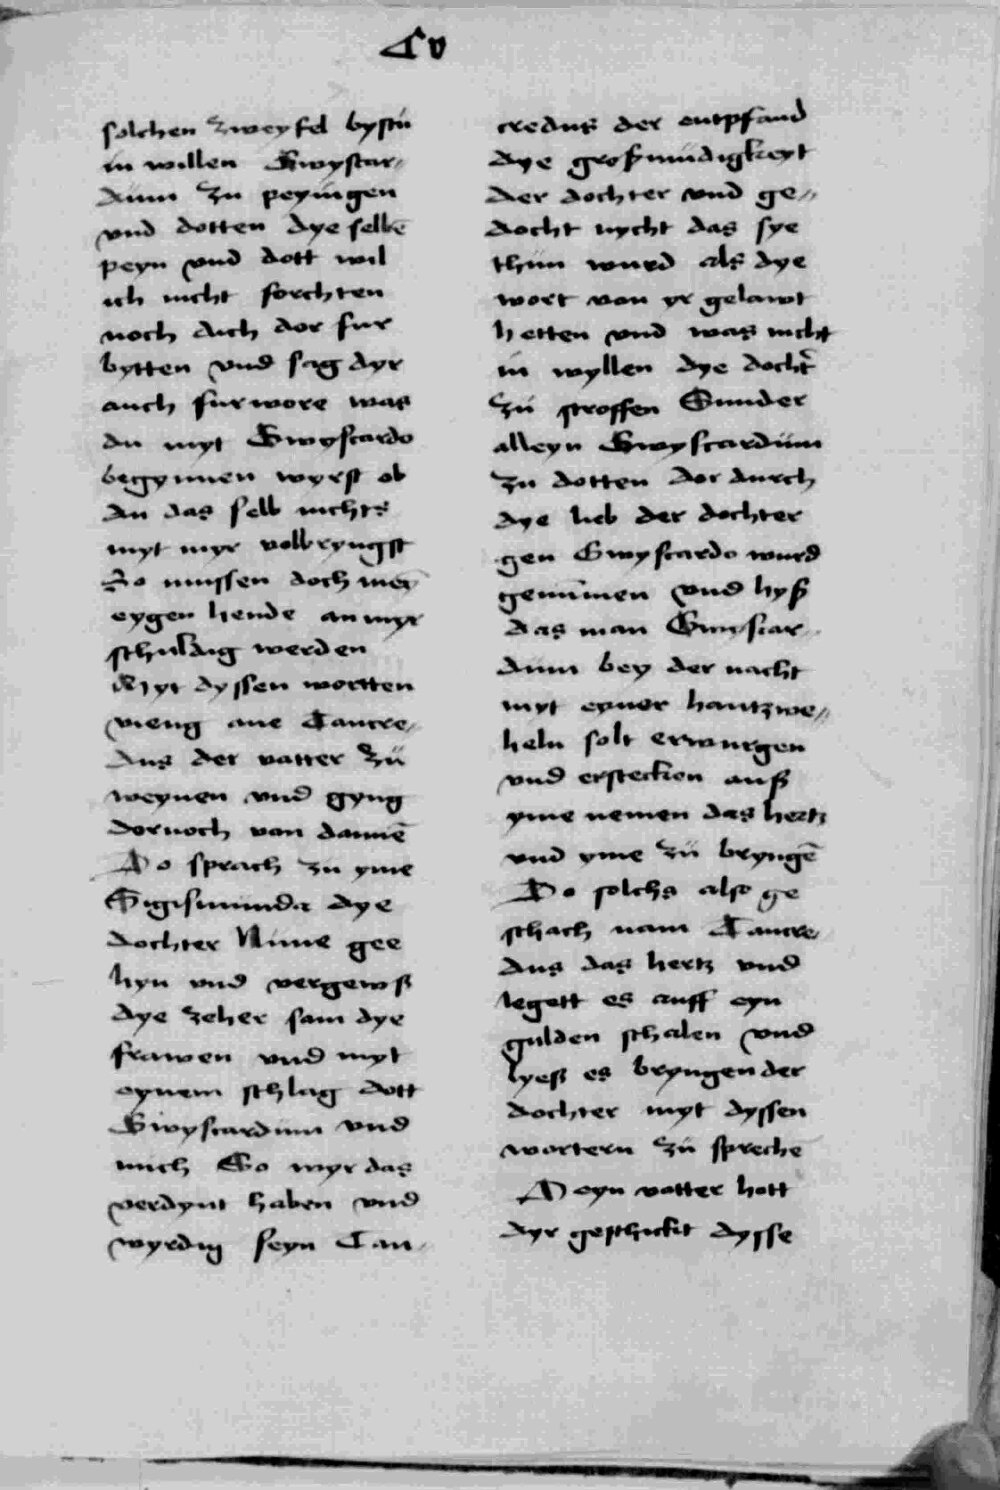 Lv
solchen zweyfel bystu
in willen Gwyscar-
dum zu peyingen
vnd dotten dye selbē
peyn vnd dott wil
ich nicht forchten
noch dich dor fur
bytten vnd sag dyr
auch furwore was
du myt Gwyscardo
begynnen wyrst ob
du das selb nichts
myt myr volbryngst
So mussen doch mey̅
eygen hende an myr
schuldig werden
Myt dyssen wortten
vieng ane Tancre-
dus der vatter zü
weynen vnd gyng
dornoch von dannē
Do sprach zu yme
Sigismunda dye
dochter Nüme gee
hyn vnd vergewß
dye zeher sam dye
frawen vnd myt
eynem schlag dott
Gwyscardum vnd
mich So wyr das
verdynt haben vnd
wyrdig seyn Tan-
credus der entpfand
dye großmüdigkeyt
der dochter vnd ge-
docht nycht das sye
thün wurd als dye
wort von yr gelawt
hetten vnd was nicht
in wyllen dye docht̉
zü stroffen Sunder
alleyn Gwyscardüm
zu dotten dor durch
dye lieb der dochter
gen Gwyscardo wurd
genūmen vnd hyß
das man Gwyscar-
düm bey der nacht
myt eyner hantzwe-
heln solt erwurgen
vnd erstecken auß
yme nemen das hertz
vnd yme zü bryngē
Do solchs also ge
schach nam Tancre-
dus das hertz vnd
legett es auff eyn
gulden schalen vnd
lyeß es bryngen der
dochter myt dyssen
wortern zü sprechē
Deyn votter hott
dyr geschickt dysse